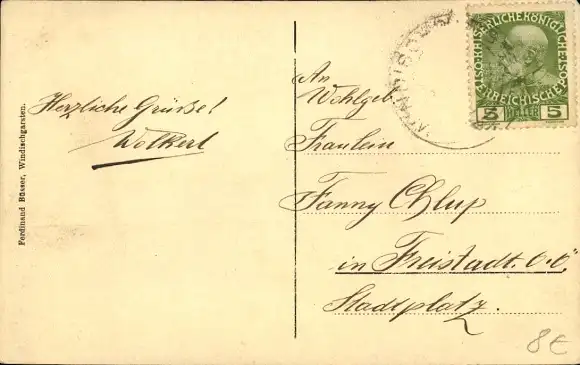 Ferdinand Büsser, Windischgarsten.
Herzliche Grüße!
Wolkerl
KAISERLICHE KÖNIGLICHE
ÖSTERREICHISCHE POST
5 HELLER 5
An
Wohlgeb.
Fräulein
Fanny Chlup
in Freistadt. O.Ö.
Stadtplatz.
8€